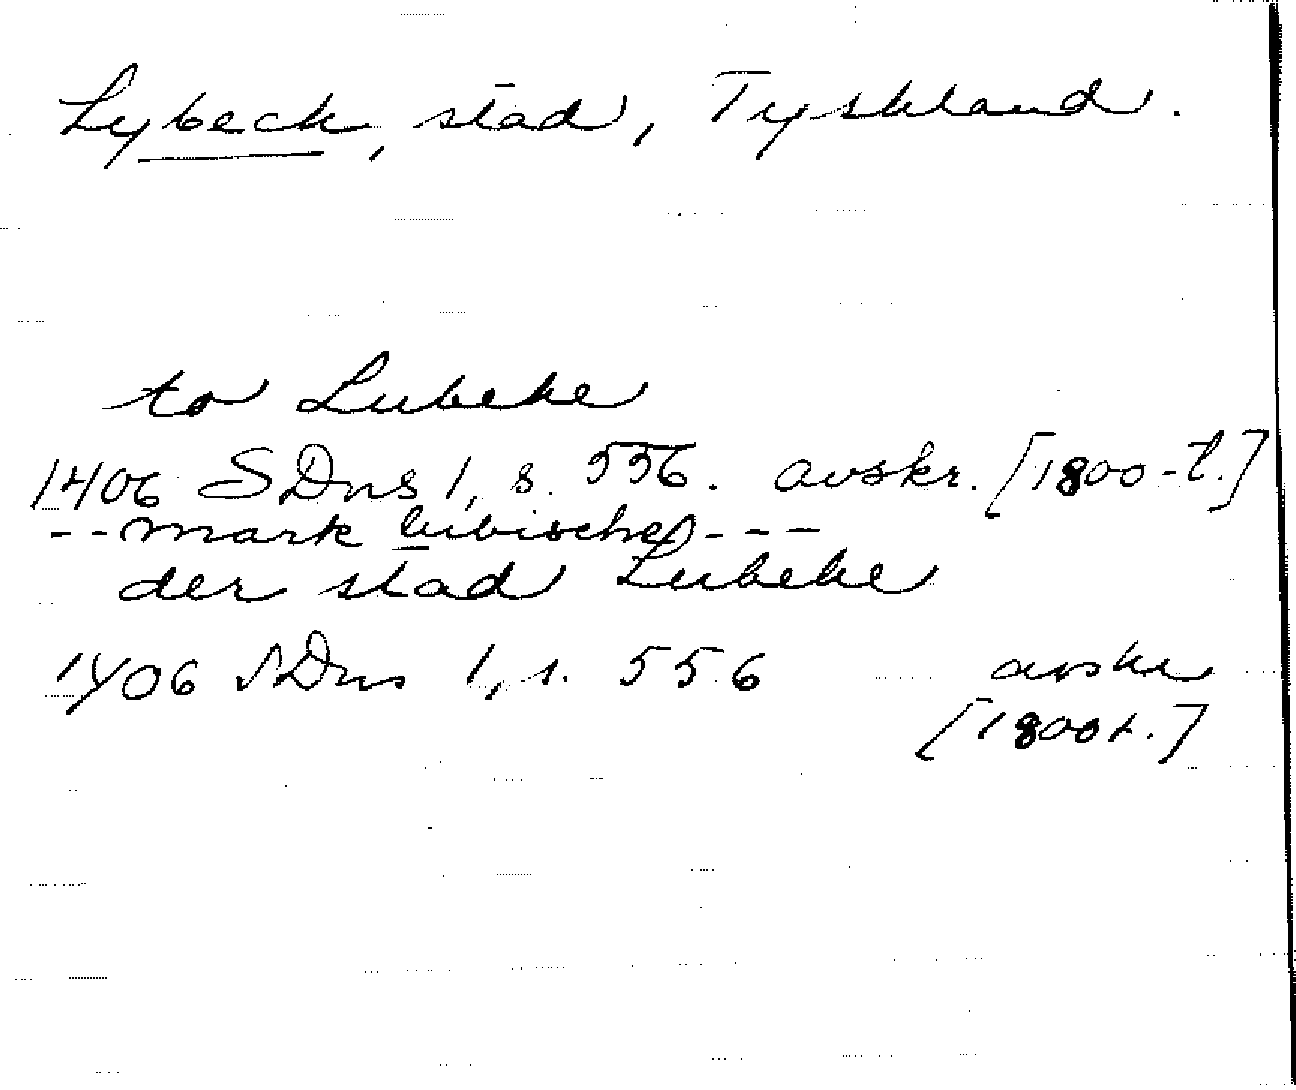 Lybeck, stad, Tyskland.
to Lubeke
1406 SDns 1, s. 556. avskr. [1800-t.]
--mark lubische ---
der stad Lubeke
1406 SDns 1, s. 556 avskr
[1800t.]